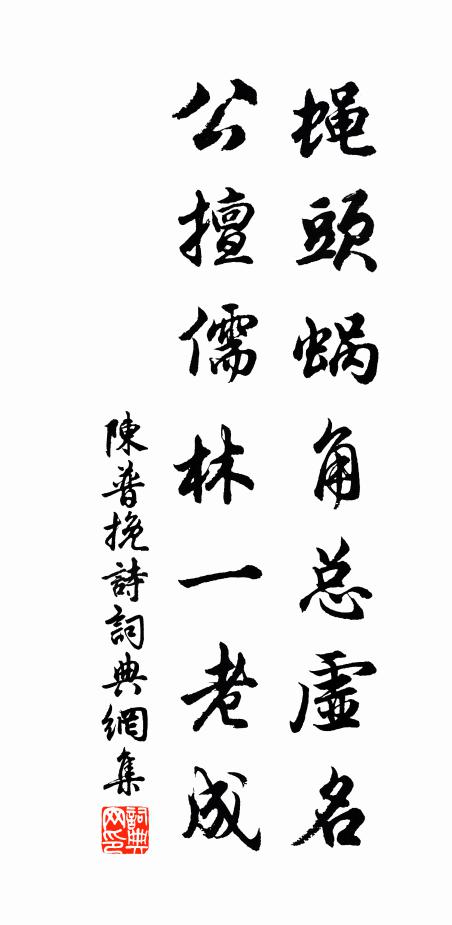 蝇頭蝸角总虚名
公擅儒林一老成
陳普挽詩詞典網集
詞典网印